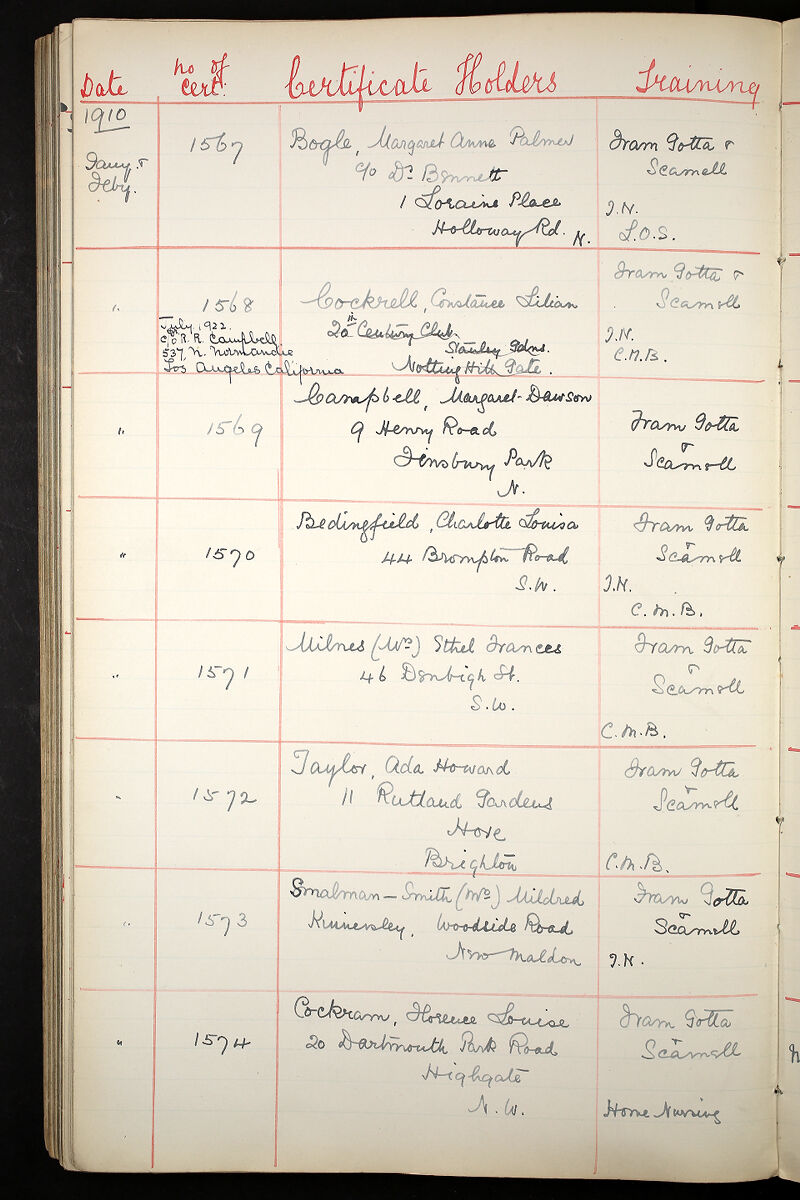 Date
no of
Cert:
Certificate Holders
Training
1910
Jany. &
Feby.
1567
Bogle, Margaret Anne Palmer
c/o Dr Bennett
1 Loraine Place
Holloway Rd. N.
Fram Gotta &
Scamell
I.N.
L.O.S.
"
1568
July 1922.
c/o R. R. Campbell
537, N. Normandie
Los Angeles California
Cockrell, Constance Lilian
20th Century Club.
Stanley Gdns.
Notting Hill Gate.
Fram Gotta &
Scamell
I.N.
C.M.B.
"
1569
Campbell, Margaret Dawson
9 Henry Road
Finsbury Park
N.
Fram Gotta
&
Scamell
"
1570
Bedingfield, Charlotte Louisa
44 Brompton Road
S.W.
Fram Gotta
&
Scamell
I.N.
C.M.B.
"
1571
Milnes (Mrs) Ethel Frances
46 Denbigh St.
S.W.
Fram Gotta
&
Scamell
C.M.B.
"
1572
Taylor, Ada Howard
11 Rutland Gardens
Hove
Brighton
Fram Gotta
&
Scamell
C.M.B.
"
1573
Smalman-Smith (Mrs) Mildred
Kinnersley, Woodside Road
New Maldon
Fram Gotta
&
Scamell
I.N.
"
1574
Cockram, Florence Louise
20 Dartmouth Park Road
Highgate
N.W.
Fram Gotta
&
Scamell
Home Nursing